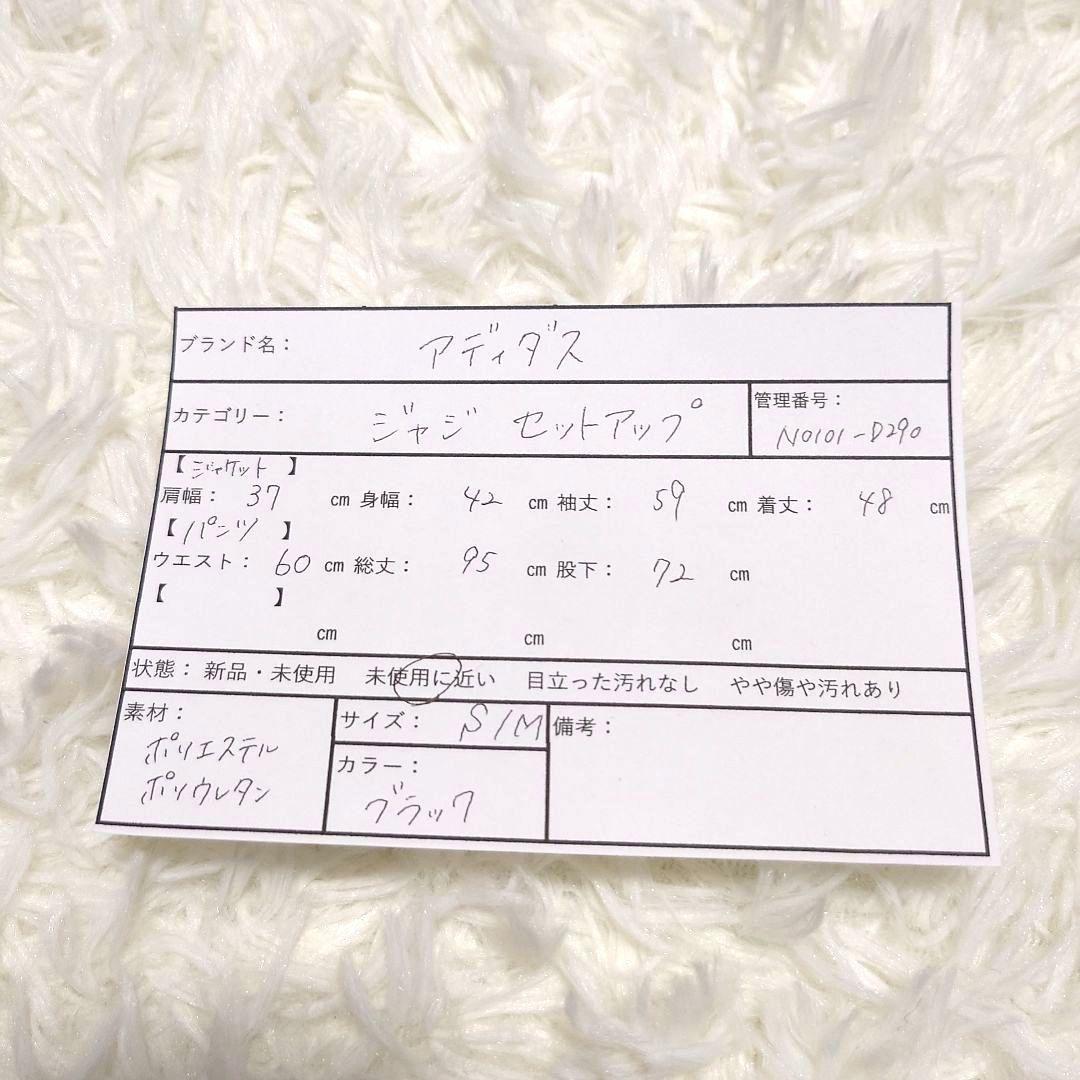 ブランド名： アディダス
カテゴリー： ジャジ セットアップ
管理番号：
N0101-D290
【 ジャケット 】
肩幅： 37 cm 身幅： 42 cm 袖丈： 59 cm 着丈： 48 cm
【 パンツ 】
ウエスト： 60 cm 総丈： 95 cm 股下： 72 cm
【 】
cm cm cm
状態： 新品・未使用 未使用に近い 目立った汚れなし やや傷や汚れあり
素材：
ポリエステル
ポリウレタン
サイズ： S/M
カラー：
ブラック
備考：